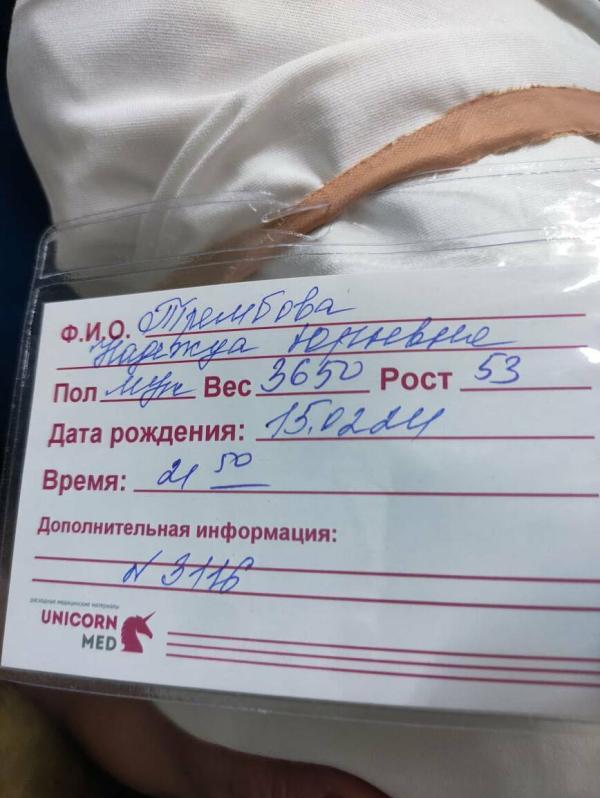 Ф.И.О. Трембова
Надежда Юрьевна
Пол муж Вес 3650 Рост 53
Дата рождения: 15.02.24
Время: 21 50
Дополнительная информация:
N 3116
расходные медицинские материалы
UNICORN
MED